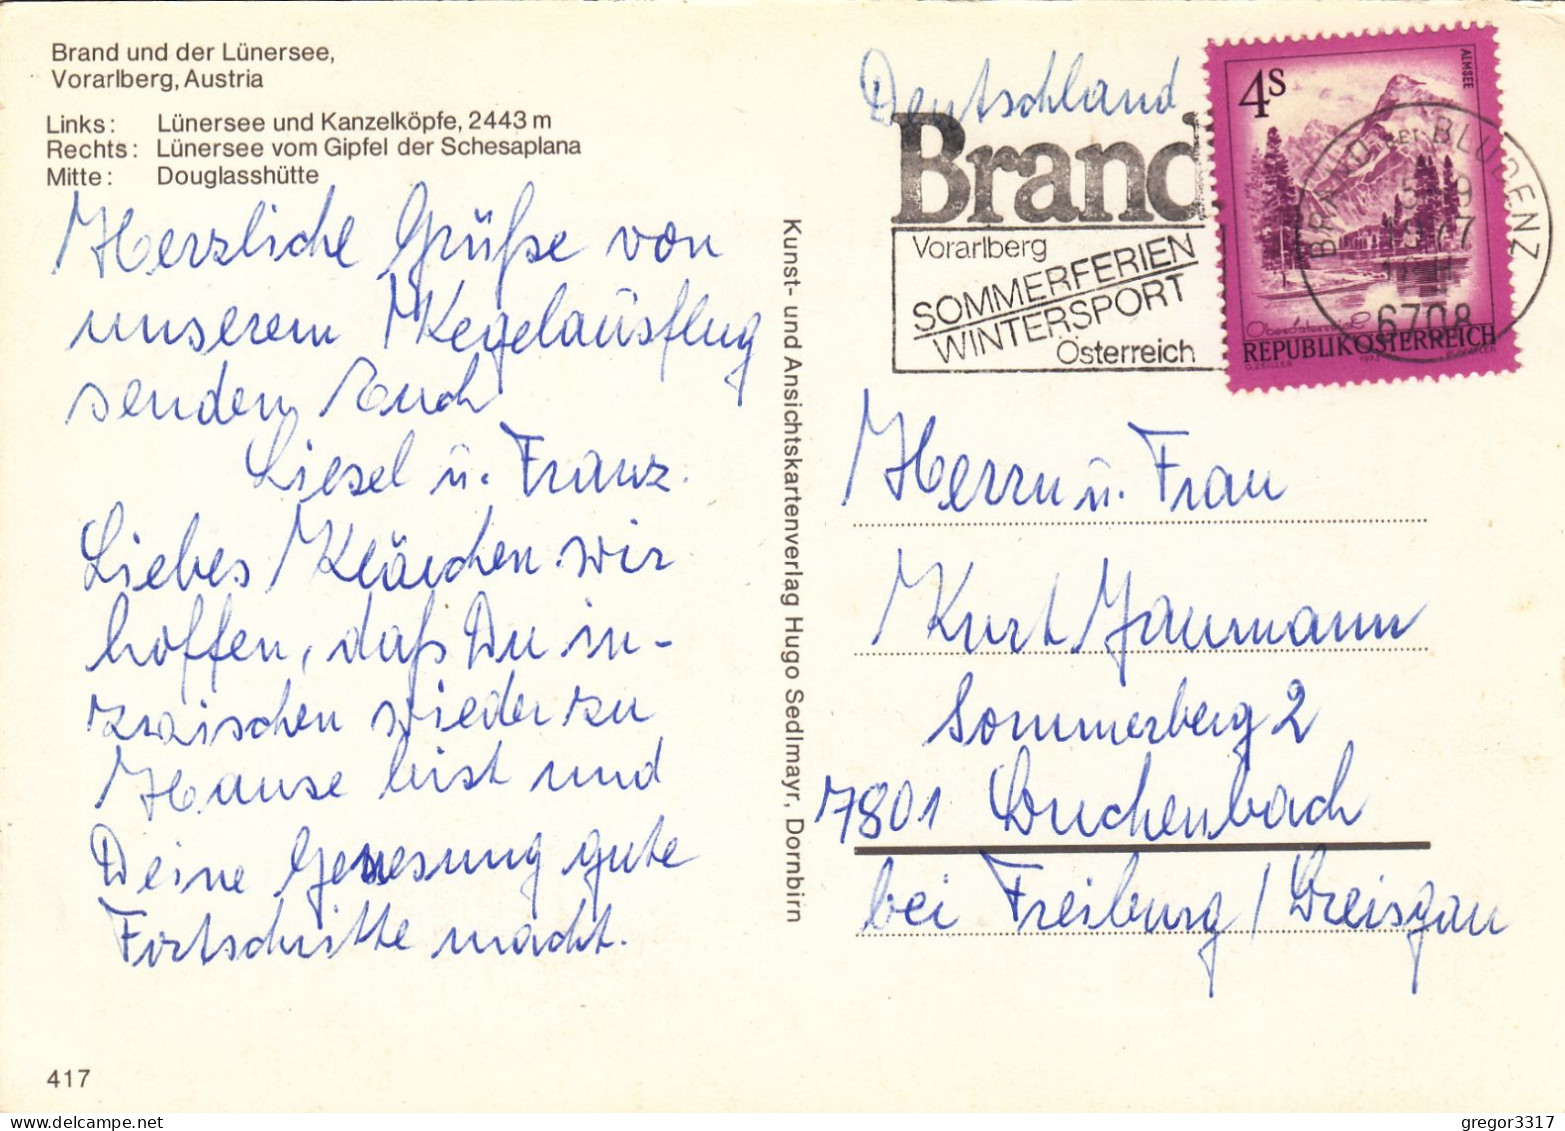 Brand und der Lünersee,
Vorarlberg, Austria
Links: Lünersee und Kanzelköpfe, 2443 m
Rechts: Lünersee vom Gipfel der Schesaplana
Mitte: Douglasshütte
Herzliche Grüße von
unserem Kegelausflug
senden Euch
Liesel u. Franz.
Liebes Klärchen wir
hoffen, daß Du in-
zwischen wieder zu
Hause bist und
Deine Genesung gute
Fortschritte macht.
417
Kunst- und Ansichtskartenverlag Hugo Sedlmayr, Dornbirn
Deutschland
Brand
Vorarlberg
SOMMERFERIEN
WINTERSPORT
Österreich
4S
ALMSEE
Oberösterreich
REPUBLIK ÖSTERREICH
G. ZEILLER
BRAND BEI BLUDENZ
6708
Herrn u. Frau
Kurt
Sommerberg 2
7801 Buchenbach
bei Freiburg / Breisgau
gregor3317